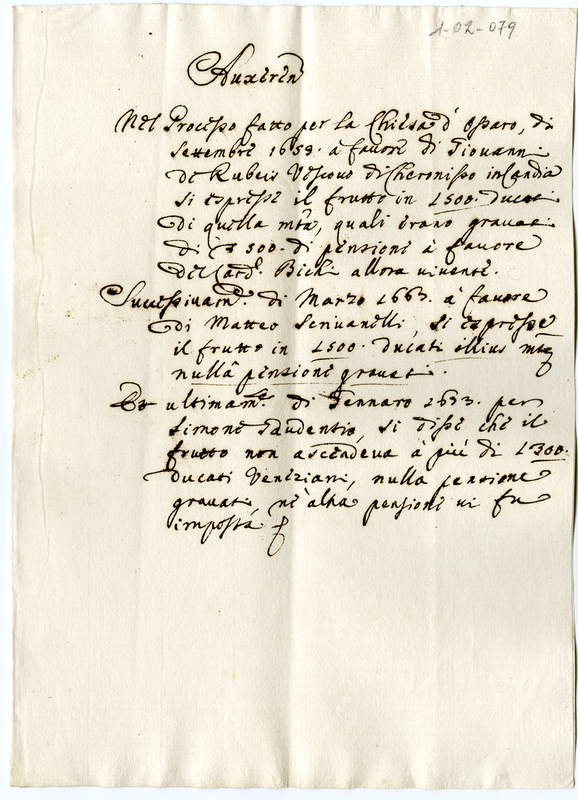 1-02-079
Auxeren
Nel Processo fatto per la Chiesa d' Osparo, di
Settembre 1658. à favore di Giovanni
de Rubeis Vescovo di Cheronisso in Candia
si espresse il frutto in 1500. ducati
di quella mta, quali erano gravati
di 500. di pensioni à favore
del Card. Bichi allora vivente.
Successivamte. di Marzo 1663. à favore
di Matteo Scrivanelli, si espresse
il frutto in 1500. ducati illius mtę
nulla pensione gravati.
Et ultimamte. di Gennaro 1673. per
Simone Gaudentio, si disse che il
frutto non ascendeva à più di 1300.
ducati Veneziani, nulla pensione
gravati, nè altra pensione vi fu
imposta